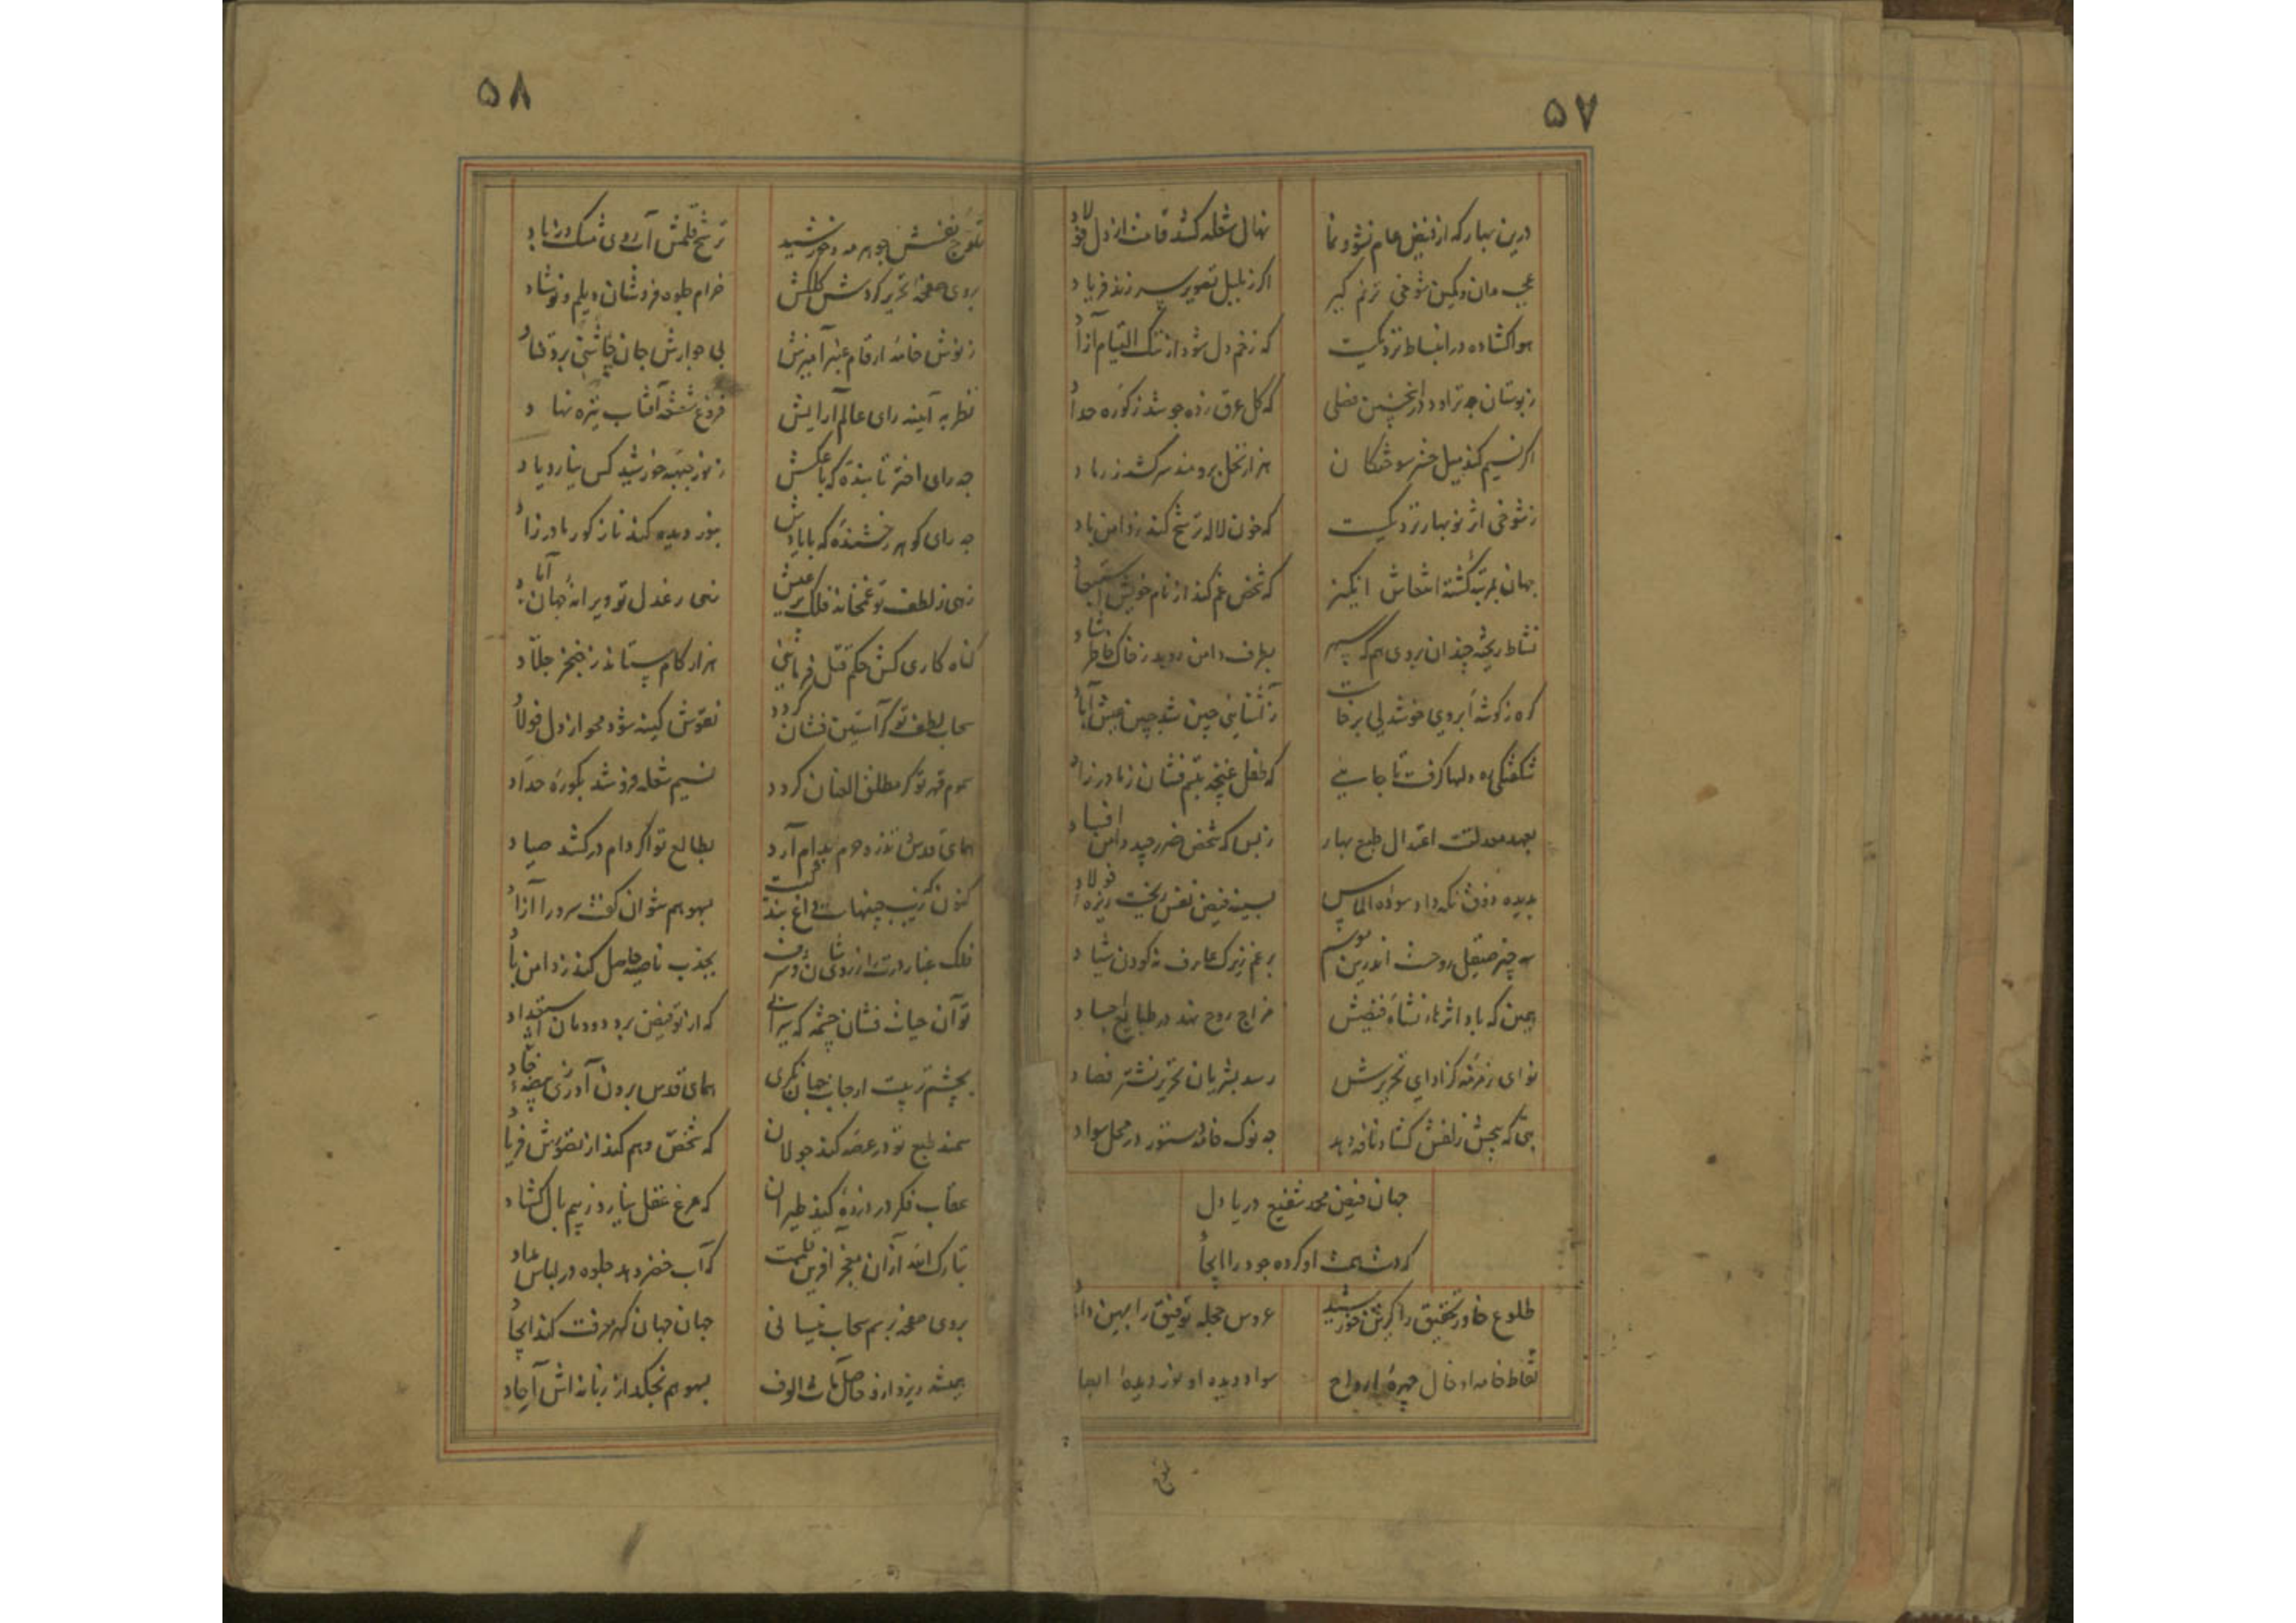 ۵۷
درین بهار که از فیض عام نشو و نما
نهال شعله کشد قامت از دل فولاد
عجب مدان و مکین شوخی ترنم گیر
اگر ز بلبل تصویر سر زند فریاد
هوا گشاده در انبساط نزدیکست
که زخم دل شود از ننگ التیام آزاد
ز بوستان چه تراود در اینچنین فصلی
که گل عرق زده جوشد ز کوره حداد
اگر نسیم کند میل خس سوختگان
هزار نخل برومند سر کشد ز رماد
ز شوخی اثر نوبهار نزدیکست
که خون لاله ترشح کند ز دامن باد
جهان بمرتبه گشته انتعاش انگیز
که شخص غم کند از نام خویش استبعاد
نشاط ریخته چندان بروی هم که سپهر
بطرف دامن روید ز خاک خاطر شاد
گره ز گوشه ابروی خوشدلی برخاست
ز آشنایی چین شد جبین عیش آباد
شگفتگی ره دلها گرفت تا جایی
که طفل غنچه تبسم فشان ز مادر زاد
بعهد معدلت اعتدال طبع بهار
ز بس که شخص ضرر چید دامن افساد
بدیده ذوق نگه داد سوده الماس
بسینه فیض نفس ریخت ریزه فولاد
چه چیز صیقل روحست اندرین موسم
برغم زیرک عارف نه کودن شیاد
همین که باد اثرهاء نشأه فیضش
مزاج روح نهد در طبایع اجساد
نوای زمزمه کز ادای تحریرش
رسد بشریان تحریر نشتر فصاد
بتی که بجنبش زلفش گشاد نافه دهد
چه نوک خامه دستور در محل سواد
جهان فیض محمد شفیع دریا دل
که دست همت او کرده جود را ایجاد
طلوع خاور تحقیق را گزین خورشید
عروس حجله توفیق را بهین داماد
نقاط خامه او خال چهره ارواح
سواد دیده او نور دیده ابعاد
تموج
۵۸
تموج نفسش جوهر مه و خورشید
ترشح قلمش آب روی شک و زباد
بروی صفحه تحریر گردش کلکش
خرام جلوه فروشان دیلم و نوشاد
ز نوش خامه ارقام عنبر آمیزش
بی جوارش جان چاشنی برد قناد
نظر به آینه رای عالم آرایش
فروغ شعشعه آفتاب تیره نهاد
چه رای اختر تابنده که با عکش
ز نور جبهه خورشید کس نیارد یاد
چه رای گوهر رخشنده که با یادش
بنور دیده کند ناز کور مادرزاد
زهی ز لطف تو غمخانه فلک پر عیش
زهی ز عدل تو ویرانه جهان آباد
گناه کاری کش حکم قتل فرمایی
هزار کام ستاند ز خنجر جلاد
سحاب لطف تو گر آستین فشان گردد
نقوش کینه شود محو از دل فولاد
سموم قهر تو گر مطلق العنان گردد
نسیم شعله فروشد بکوره حداد
همای قدس نذرو حرم بدام آرد
بطالع تو اگر دام در کشد صیاد
بسهو هم نتوان گفت سرو را آزاد
بجذب ناصیه حاصل کند ز دامن باد
تو آن حیات فشان چشمه که سیرابی
که از تو فیض برد دودمان استعداد
بچشم تربیت ار جانب جهان نگری
همای قدس برون آوری ز بیضه خاد
سمند طبع تو در عرصه کند جولان
که شخص وهم کند از نقوش فریاد
عقاب فکر در ذروه کند طیران
که مرغ عقل نیارد ز بیم بال گشاد
تبارک الله از آن معجز آفرین قلمت
که آب خضر دهد جلوه در لباس مداد
بروی صفحه برسم سحاب نیسانی
جهان جهان گهر معرفت کند ایجاد
همیشه ریزد از و حاصل مآت الوف
بسهو هم نچکد از زبانه اش آحاد